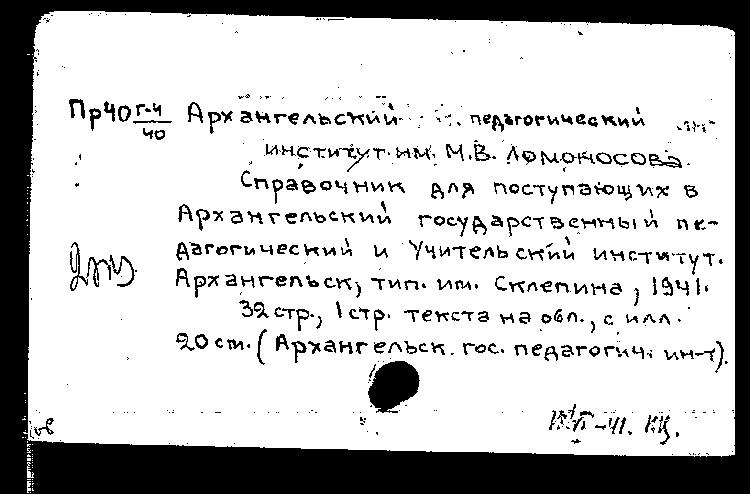 Пр40 г-4/40 Архангельский педагогический
институт им. М.В. Ломоносова.
Справочник для поступающих в
Архангельский государственный пе-
дагогический и Учительский институт.
Архангельск, тип. им. Склепина, 1941.
32 стр., 1 стр. текста на обл., с илл.
20 см. (Архангельск. гос. педагогич. ин-т).